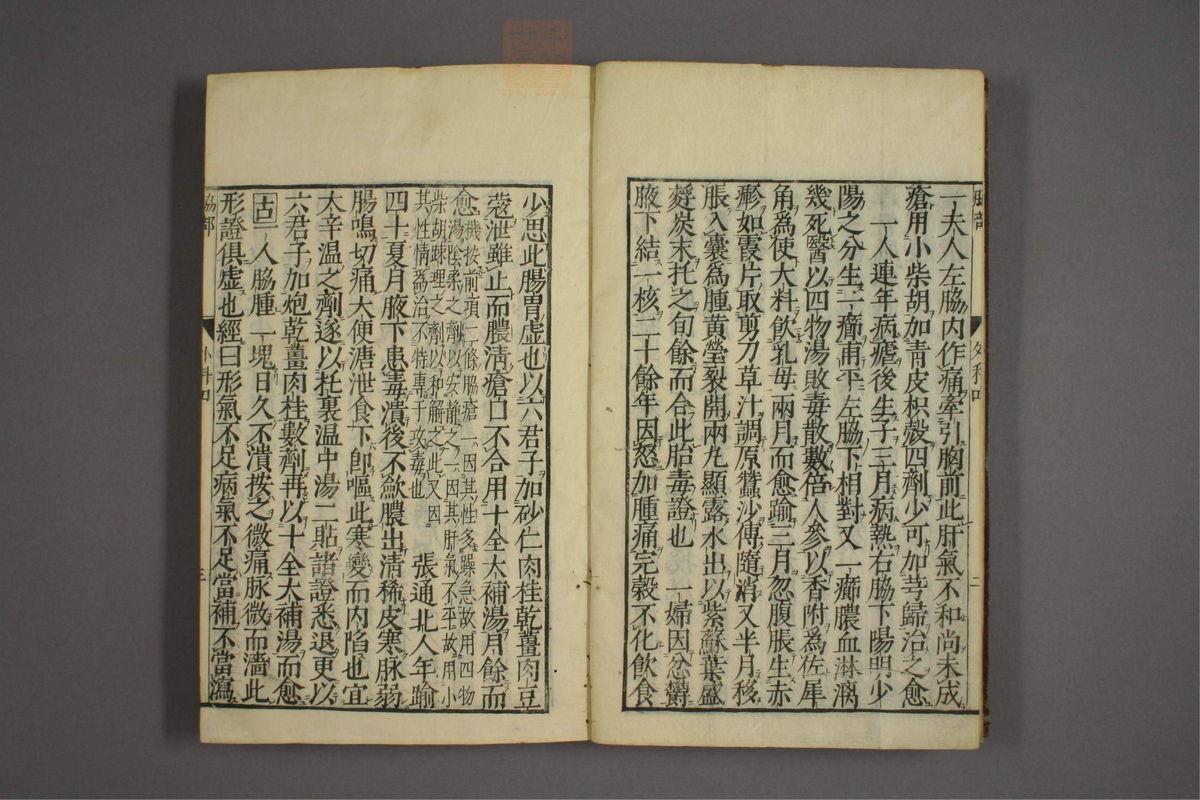 一夫人左脇内作痛牽引胸前此肝氣不和尚未成
瘡用小柴胡加青皮枳殻四劑少可加芎歸治之愈
一人連年病瘧後生子三月病熱右脇下陽明少
陽之分生一癤甫平左脇下相對又一癤膿血淋漓
幾死醫以四物湯敗毒散數倍人參以香附為佐犀
角為使大料飲乳母兩月而愈踰三月忽腹脹生赤
𤺋如霞片取剪刀草汁調原蠶沙傅隨消又半月移
脹入囊為腫黄瑩裂開兩丸顯露水出以紫蘇葉盛
麩炭末托之旬餘而合此胎毒證也　一婦因忿欝
腋下結一核二十餘年因怒加腫痛完穀不化飲食
少思此腸胃虛也以六君子加砂仁肉桂乾薑肉豆
蔲泄雖止而膿清瘡口不合用十全大補湯月餘而
愈機按前項二條脇瘡一因其性多躁急故用四物
湯陰柔之劑以安靜之一因其肝氣不平故用小
柴胡踈理之劑以和解之此又因
其性情為治不特專于攻毒也
張通北人年踰
四十夏月腋下患毒潰後不歛膿出清稀皮寒脉弱
腸鳴切痛大便溏泄食下卽嘔此寒變而内陷也宜
大辛温之劑遂以托裏温中湯二貼諸證悉退更以
六君子加炮乾薑肉桂數劑再以十全大補湯而愈
古一人脇腫一塊日久不潰按之微痛脉微而濇此
形證俱虛也經曰形氣不足病氣不足當補不當瀉